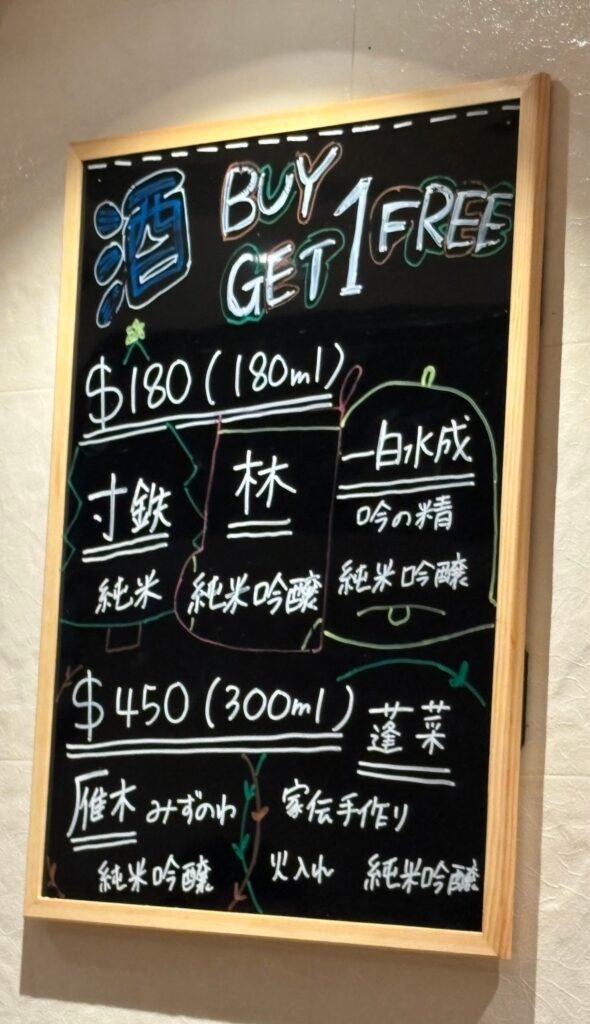 酒 BUY
GET 1 FREE
$180 (180ml)
寸鉄
純米
林
純米吟醸
一白水成
吟の精
純米吟醸
$450 (300ml)
雁木 みずのわ
純米吟醸
蓬莱
家伝手作り
火入れ 純米吟醸